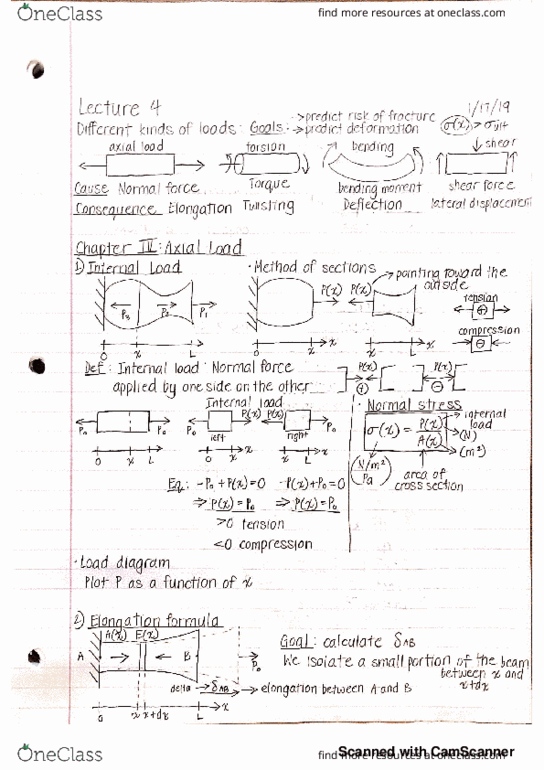 OneClass
find more resources at oneclass.com
Lecture 4
1/17/19
Different kinds of loads: Goals: -> predict risk of fracture σ(x) > σult
-> predict deformation
axial load torsion bending shear
Cause Normal force Torque bending moment shear force
Consequence Elongation Twisting Deflection lateral displacement
Chapter III: Axial Load
1) Internal Load
· Method of sections
pointing toward the outside
P3 P2 P1
P(x) P(x)
tension
⊕
compression
⊖
0 x L x
0 x x L x
Def: Internal load: Normal force
applied by one side on the other
P(x) P(x)
⊕ ⊖
Internal load
P0 P0
P0 P(x) P(x) P0
left right
0 x L
0 x x L
· Normal stress
σ(x) = P(x)/A(x)
internal load (N)
(m²)
(N/m²) Pa
area of cross section
Eq: -P0 + P(x) = 0 -P(x) + P0 = 0
⇒ P(x) = P0 ⇒ P(x) = P0
>0 tension
<0 compression
· Load diagram
Plot P as a function of x
2) Elongation formula
A(x) E(x)
A B P0
delta → δAB → elongation between A and B
0 x x+dx L x
Goal: calculate δAB
We isolate a small portion of the beam
between x and x+dx
OneClass
find more resources at oneclass.com
Scanned with CamScanner